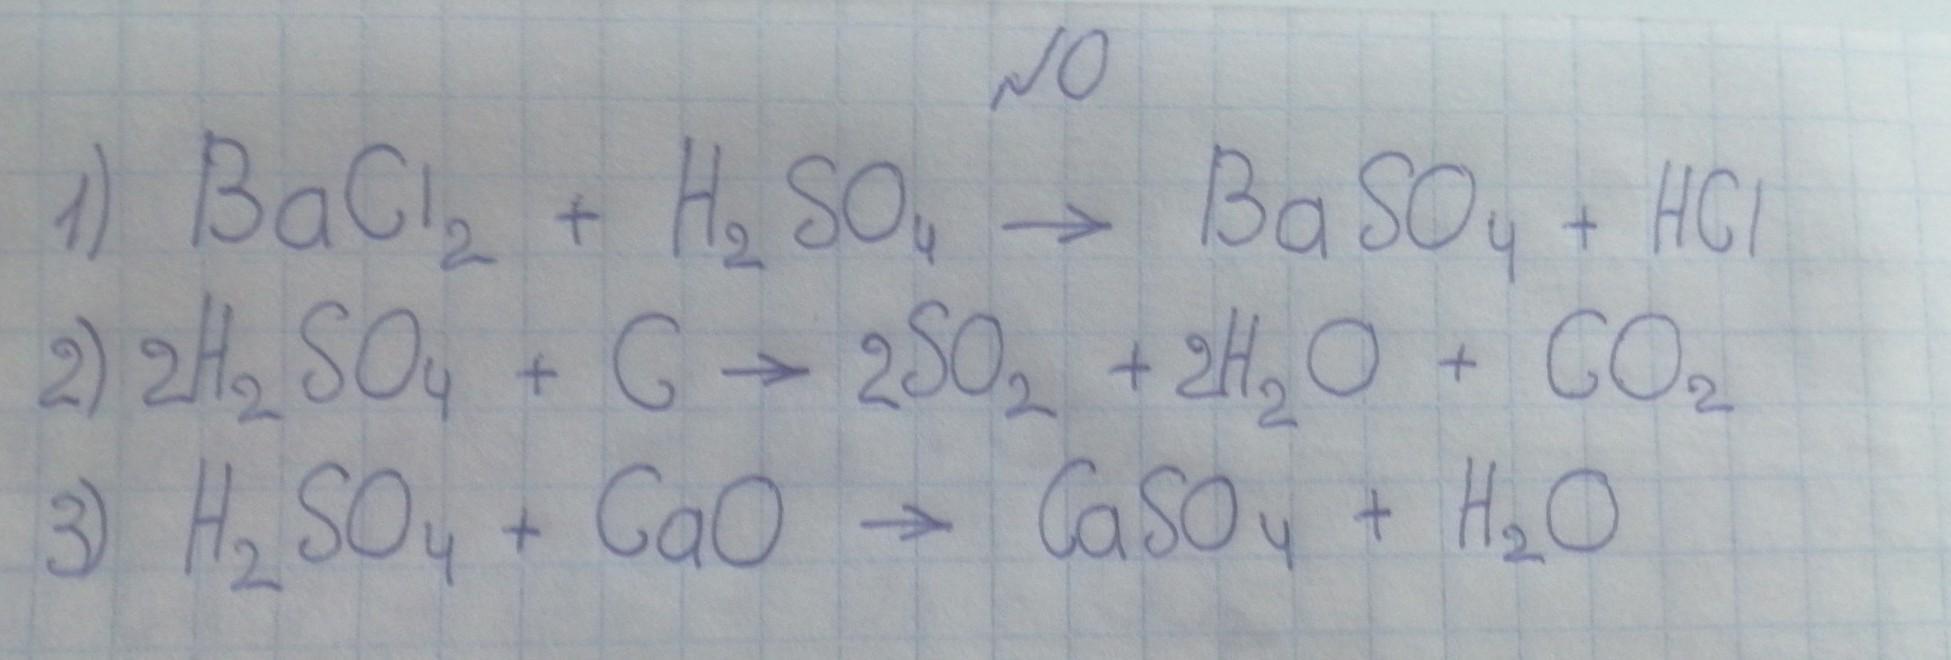 №0
1) BaCl₂ + H₂SO₄ → BaSO₄ + HCl
2) 2H₂SO₄ + C → 2SO₂ + 2H₂O + CO₂
3) H₂SO₄ + CaO → CaSO₄ + H₂O